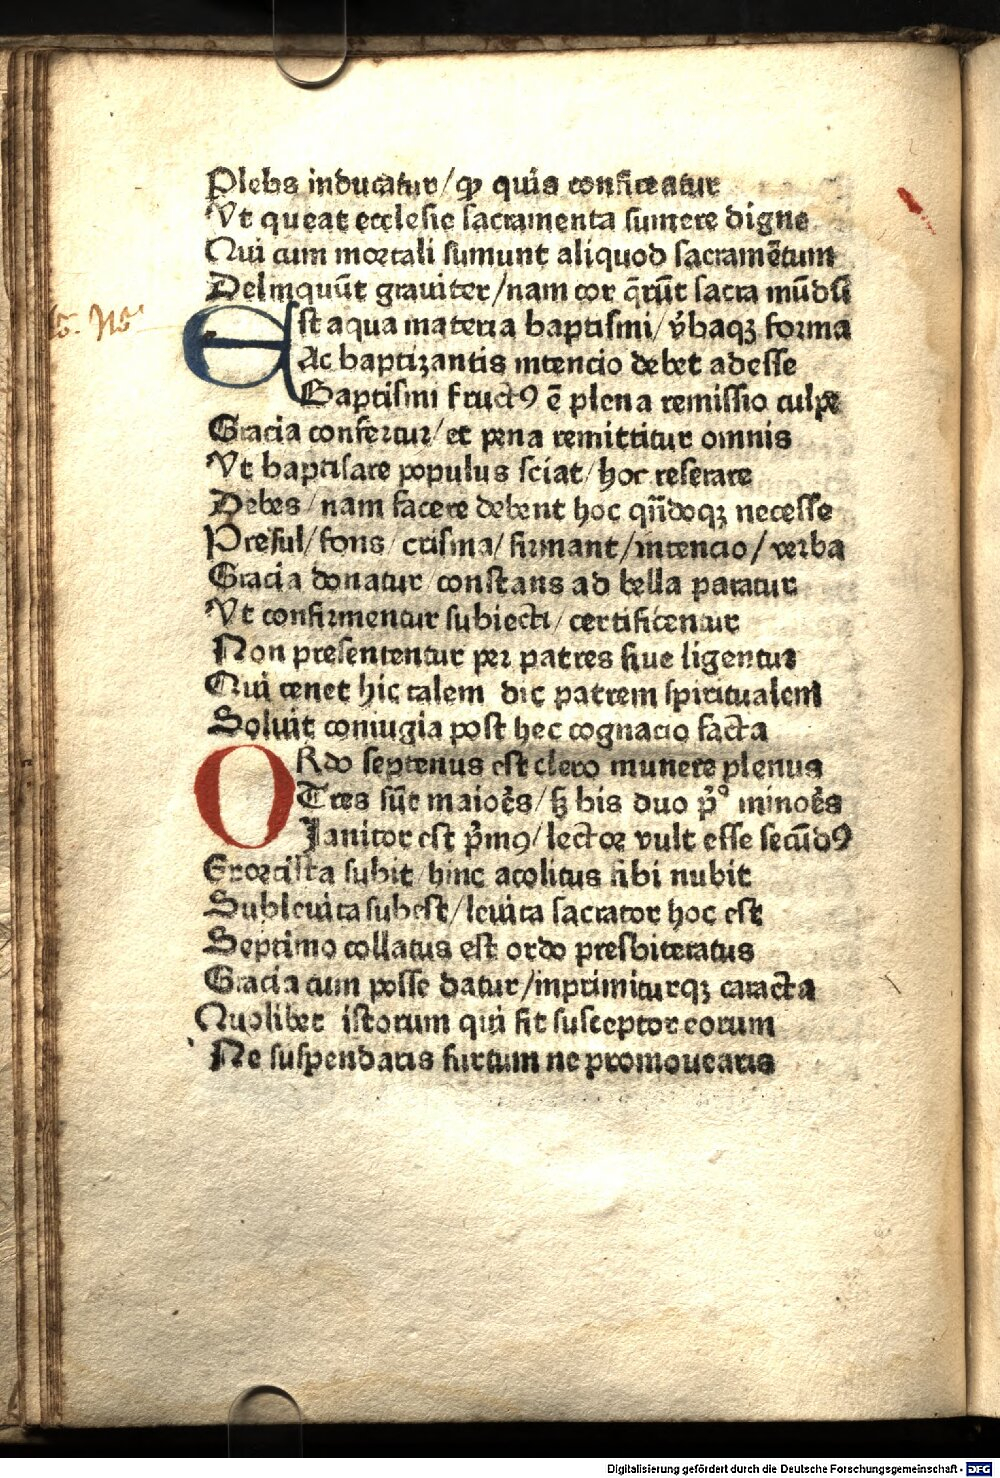 Plebs inducatur/ ꝙ quis confiteatur
Vt queat ecclesie sacramenta sumere digne
Qui cum mortali sumunt aliquod sacramētum
Delinquūt grauiter/nam cor q̄rūt sacra mūdū
Est aqua materia baptismi/ v̄baqꝫ forma
Ac baptizantis intencio debet adesse
Baptismi fructꝰ ē plena remissio culpe
Gracia confertur/ et pena remittitur omnis
Vt baptisare populus sciat/ hoc reserare
Debes/ nam facere debent hoc qn̄doqꝫ necesse
Presul/ fons/ crisma/ firmant/ intencio/ verba
Gracia donatur/ constans ad bella paratur
Vt confirmentur subiecti/ certificentur
Non presententur per patres siue ligentur
Qui tenet hic talem dic patrem spiritualem
Soluit coniugia post hec cognacio facta
ORdo septenus est clero munere plenus
Tres sūt maiores/ sꝫ bis duo p̄º minores
Janitor est p̄mꝰ/ lector vult esse secūdꝰ
Exorcista subit/ hinc acolitus sibi nubit
Subleuita subest/ leuita sacrator hoc est
Septimo collatus est ordo presbiteratus
Gracia cum posse datur/inprimiturqꝫ caracta
Quolibet istorum qui fit susceptor eorum
Ne suspendaris furtum ne promouearis
Digitalisierung gefördert durch die Deutsche Forschungsgemeinschaft - DFG